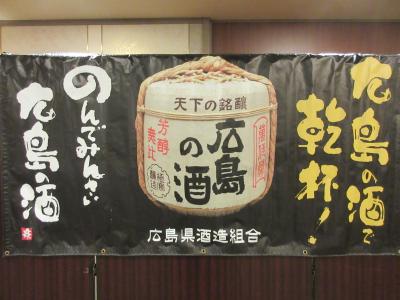 広島の酒で
乾杯!
天下の銘醸
広島
の酒
芳醇
美比
広島県酒造組合
のんでみんさい
広島の酒